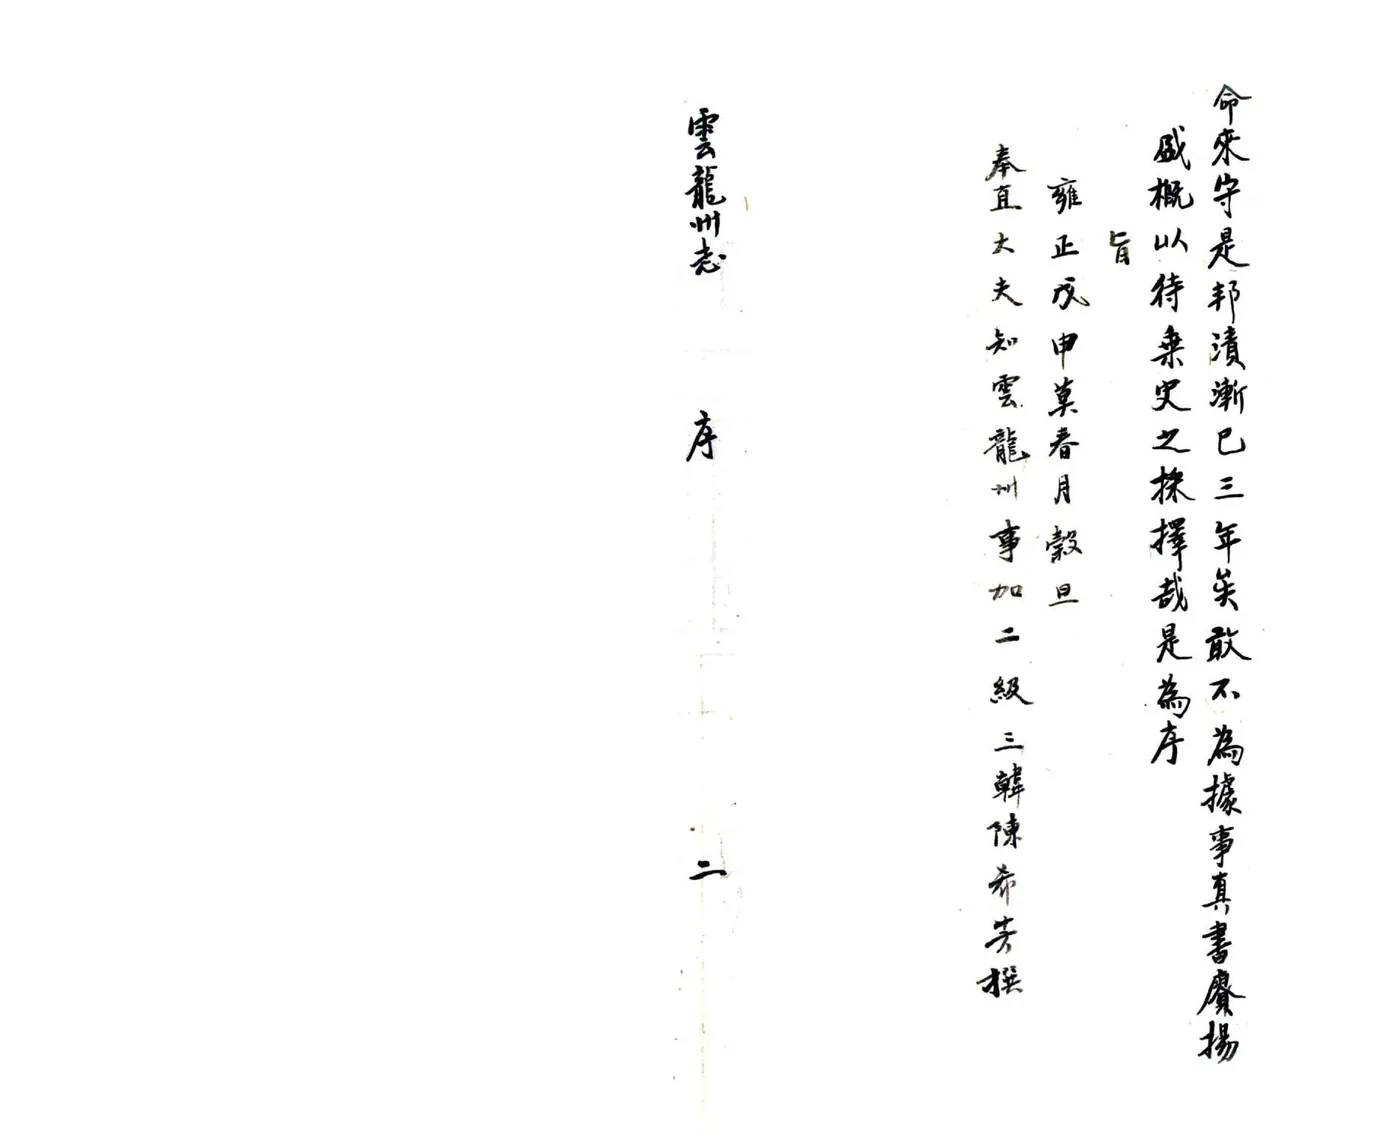 命來守是邦漬漸已三年矣敢不為據事真書賡揚
盛概以待乗史之採擇哉是為序
旨
雍正戊申莫春月穀旦
奉直大夫知雲龍州事加二級三韓陳希芳撰
雲龍州志 序 二